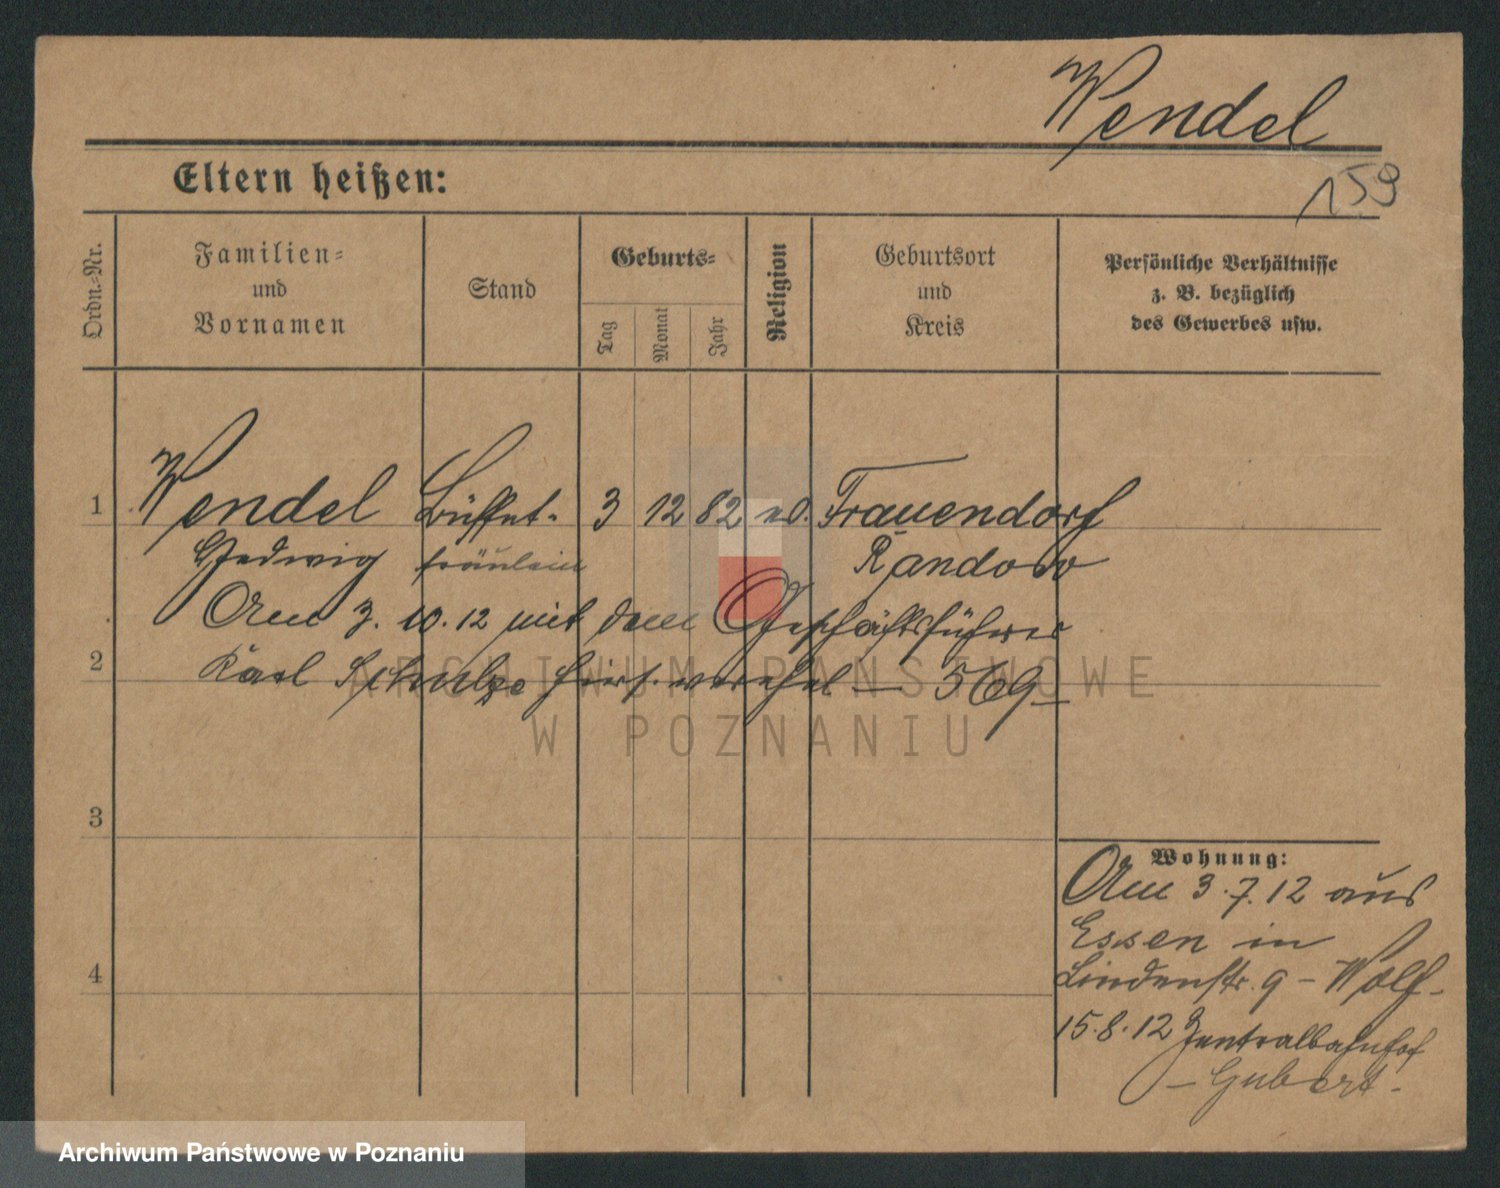 Wendel
159
Eltern heißen:
Ordn.-Nr.
Familien- und Vornamen
Stand
Geburts-
Tag
Monat
Jahr
Religion
Geburtsort und Kreis
Persönliche Verhältnisse
z. B. bezüglich
des Gewerbes usw.
1 Wendel Büffet- 3 12 82 ev. Frauendorf
Hedwig fräulein Randow
Am 3.10.12 mit dem Geschäftsführer
2 Karl Schulze hier verehel – 569
3
4
Wohnung:
Am 3.7.12 aus
Essen in
Lindenstr. 9 – Wolf.
15.8.12 Zentralbahnhof
– Gubert.
ARCHIWUM PAŃSTWOWE
W POZNANIU
Archiwum Państwowe w Poznaniu